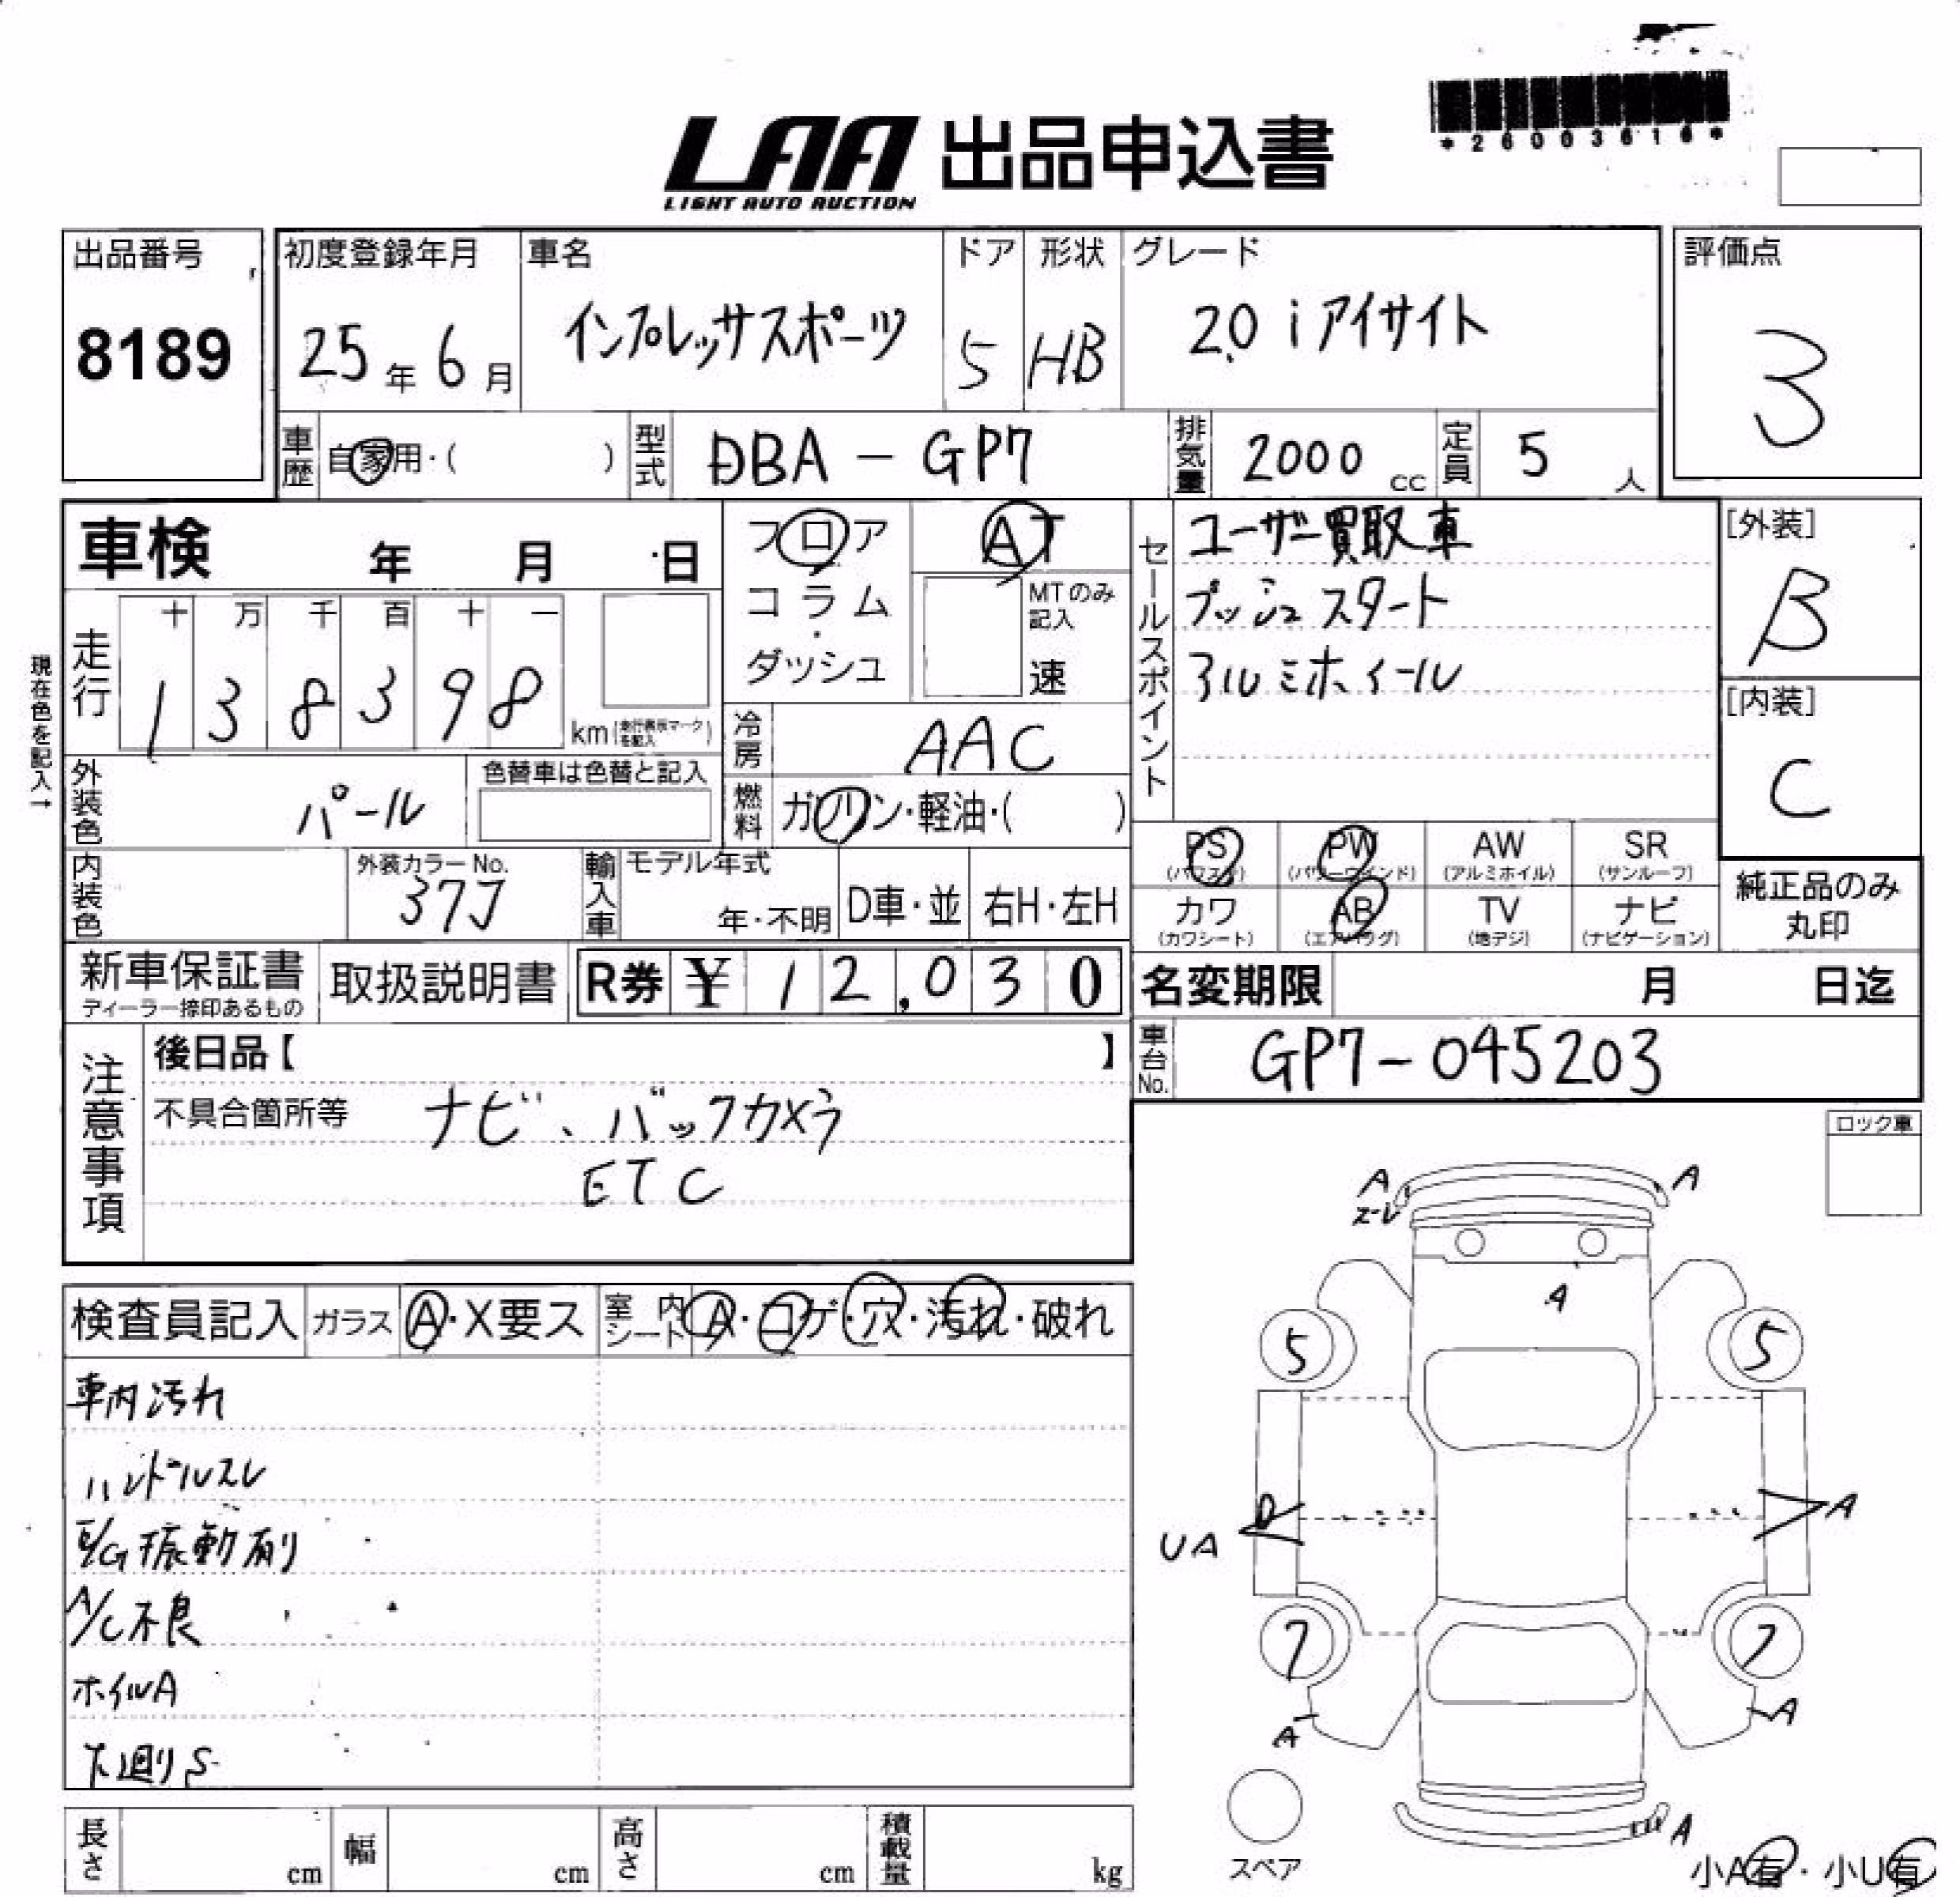 *26003616*
LAA 出品申込書
LIGHT AUTO AUCTION
出品番号
8189
初度登録年月
25年6月
車名
インプレッサスポーツ
ドア
5
形状
HB
グレード
2.0 i アイサイト
評価点
3
車歴
自家用・( )
型式
DBA - GP7
排気量
2000 cc
定員
5人
車検 年 月 日
フロア
コラム
・
ダッシュ
AT
MTのみ
記入
速
セールスポイント
ユーザー買取車
プッシュスタート
アルミホイール
[外装]
B
[内装]
C
現在色を記入→
走行
十 万 千 百 十 一
1 3 8 3 9 8
km(走行表示マークを記入)
冷房
AAC
外装色
パール
色替車は色替と記入
燃料
ガソリン・軽油・( )
PS
(パワステ)
PW
(パワーウインド)
AW
(アルミホイル)
SR
(サンルーフ)
カワ
(カワシート)
AB
(エアバッグ)
TV
(地デジ)
ナビ
(ナビゲーション)
純正品のみ
丸印
内装色
外装カラーNo.
37J
輸入車
モデル年式
年・不明
D車・並
右H・左H
新車保証書
ディーラー捺印あるもの
取扱説明書
R券 ¥ 12,030
名変期限 月 日迄
車台No.
GP7-045203
注意事項
後日品【 】
不具合箇所等
ナビ、バックカメラ
ETC
ロック車
検査員記入
ガラス
A・X要ス
室内シート
A・コゲ・穴・汚れ・破れ
車内汚れ
ハンドルスレ
E/G振動有り
A/C不良
ホイルA
下廻りS
A
ズレ
A
A
5
5
UA
A
7
7
A
A
A
スペア
小A有・小U有
長さ cm
幅 cm
高さ cm
積載量 kg